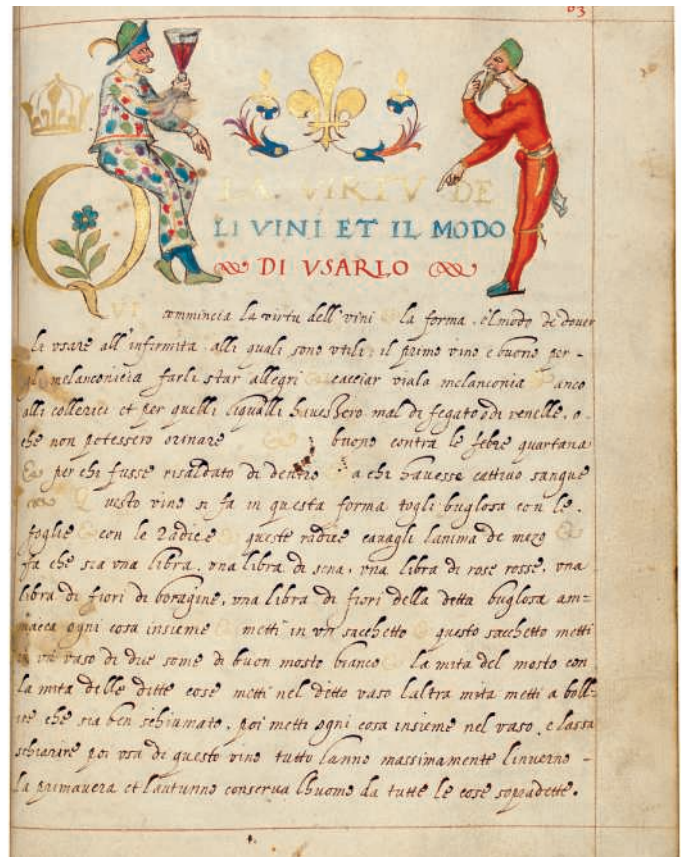 63
LA VIRTV DE
LI VINI ET IL MODO
DI VSARLO
QVI commincia la virtu dell' vini & la forma, e'l modo de dover
li vsare all' infirmita alli quali sono vtili; il primo vino e buono per -
gli melanconici a farli star allegri & cacciar via la melanconia & anco
alli collerici et per quelli liqualli havessero mal di fegato o di venelle, o -
che non potessero orinare & buono contra le febre quartana
& per chi fusse risaldato di dentro & a chi havesse cattivo sangue
Questo vino si fa in questa forma togli buglosa con le
foglie & con le radice & queste radice cavagli lanima de mezo &
fa che sia vna libra, vna libra di sena, vna libra de rose rosse, vna
libra di fiori di boragine, vna libra di fiori della detta buglosa am=
macca ogni cosa insieme & metti in vn sacchetto & questo sacchetto metti
in vn vaso di due some di buon mosto bianco & la mita del mosto con
la mita delle ditte cose metti nel ditto vaso laltra mita metti a boll=
ire che sia ben schiumato, poi metti ogni cosa insieme nel vaso, e lassa
schiarire poi vsa di questo vino tutto lanno massimamente linverno -
la primavera et lautunno conserva lhuomo da tutte le cose sopradette.